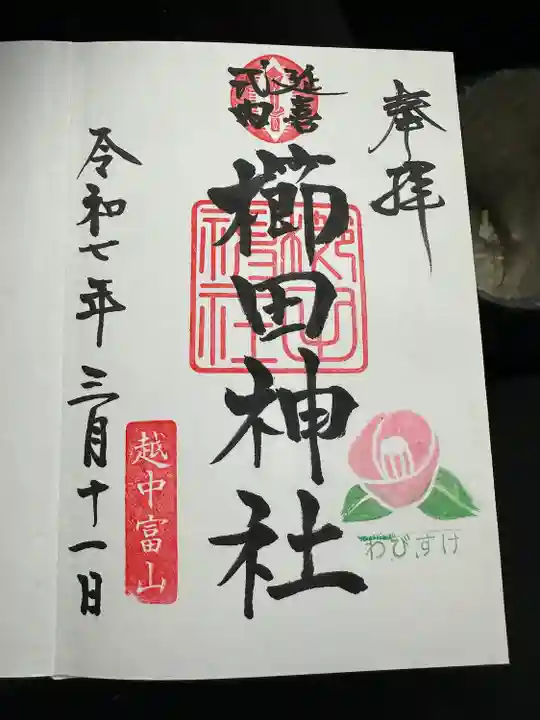 奉拝
延喜
式内
櫛田神社
櫛田
神社
わびすけ
越中富山
令和七年三月十一日